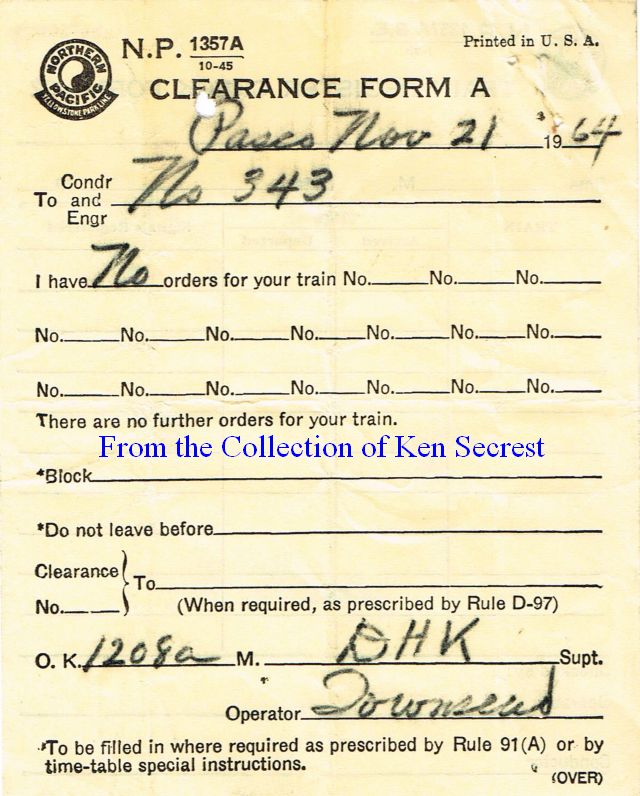 NORTHERN PACIFIC
YELLOWSTONE PARK LINE
N.P. 1357A
10-45
Printed in U. S. A.
CLEARANCE FORM A
Pasco Nov 21 1964
Condr
To and No 343
Engr
I have No orders for your train No. No. No.
No. No. No. No. No. No. No.
No. No. No. No. No. No. No.
There are no further orders for your train.
From the Collection of Ken Secrest
*Block
*Do not leave before
Clearance
To
No.
(When required, as prescribed by Rule D-97)
O. K. 1208a M. DHK Supt.
Operator Townsend
*To be filled in where required as prescribed by Rule 91(A) or by
time-table special instructions.
(OVER)